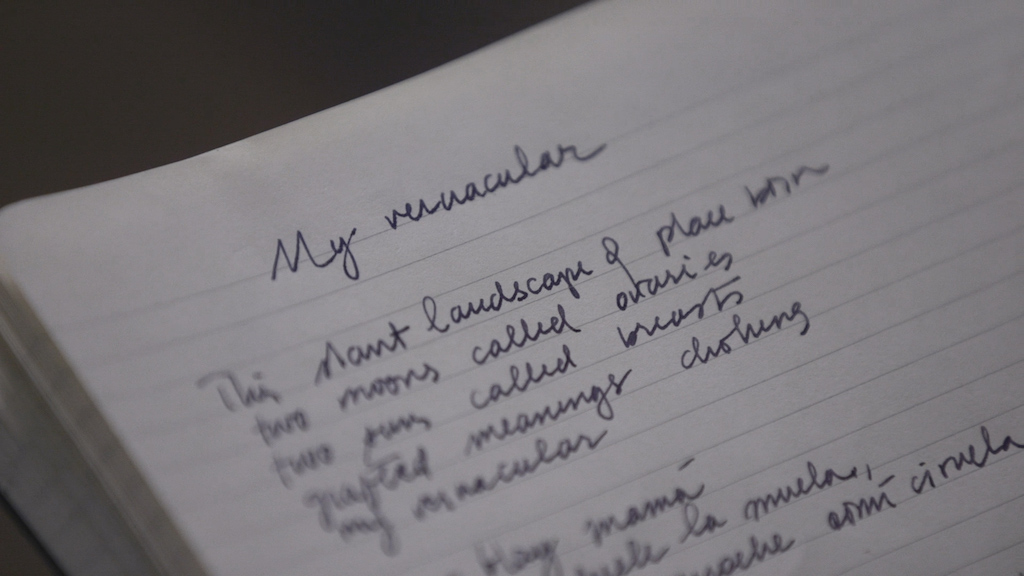 My vernacular
This slant landscape & place worn
two moons called ovaries
two suns called breasts
grafted meanings choking
my vernacular
Hay mamá
la muela,
noche comí ciruela